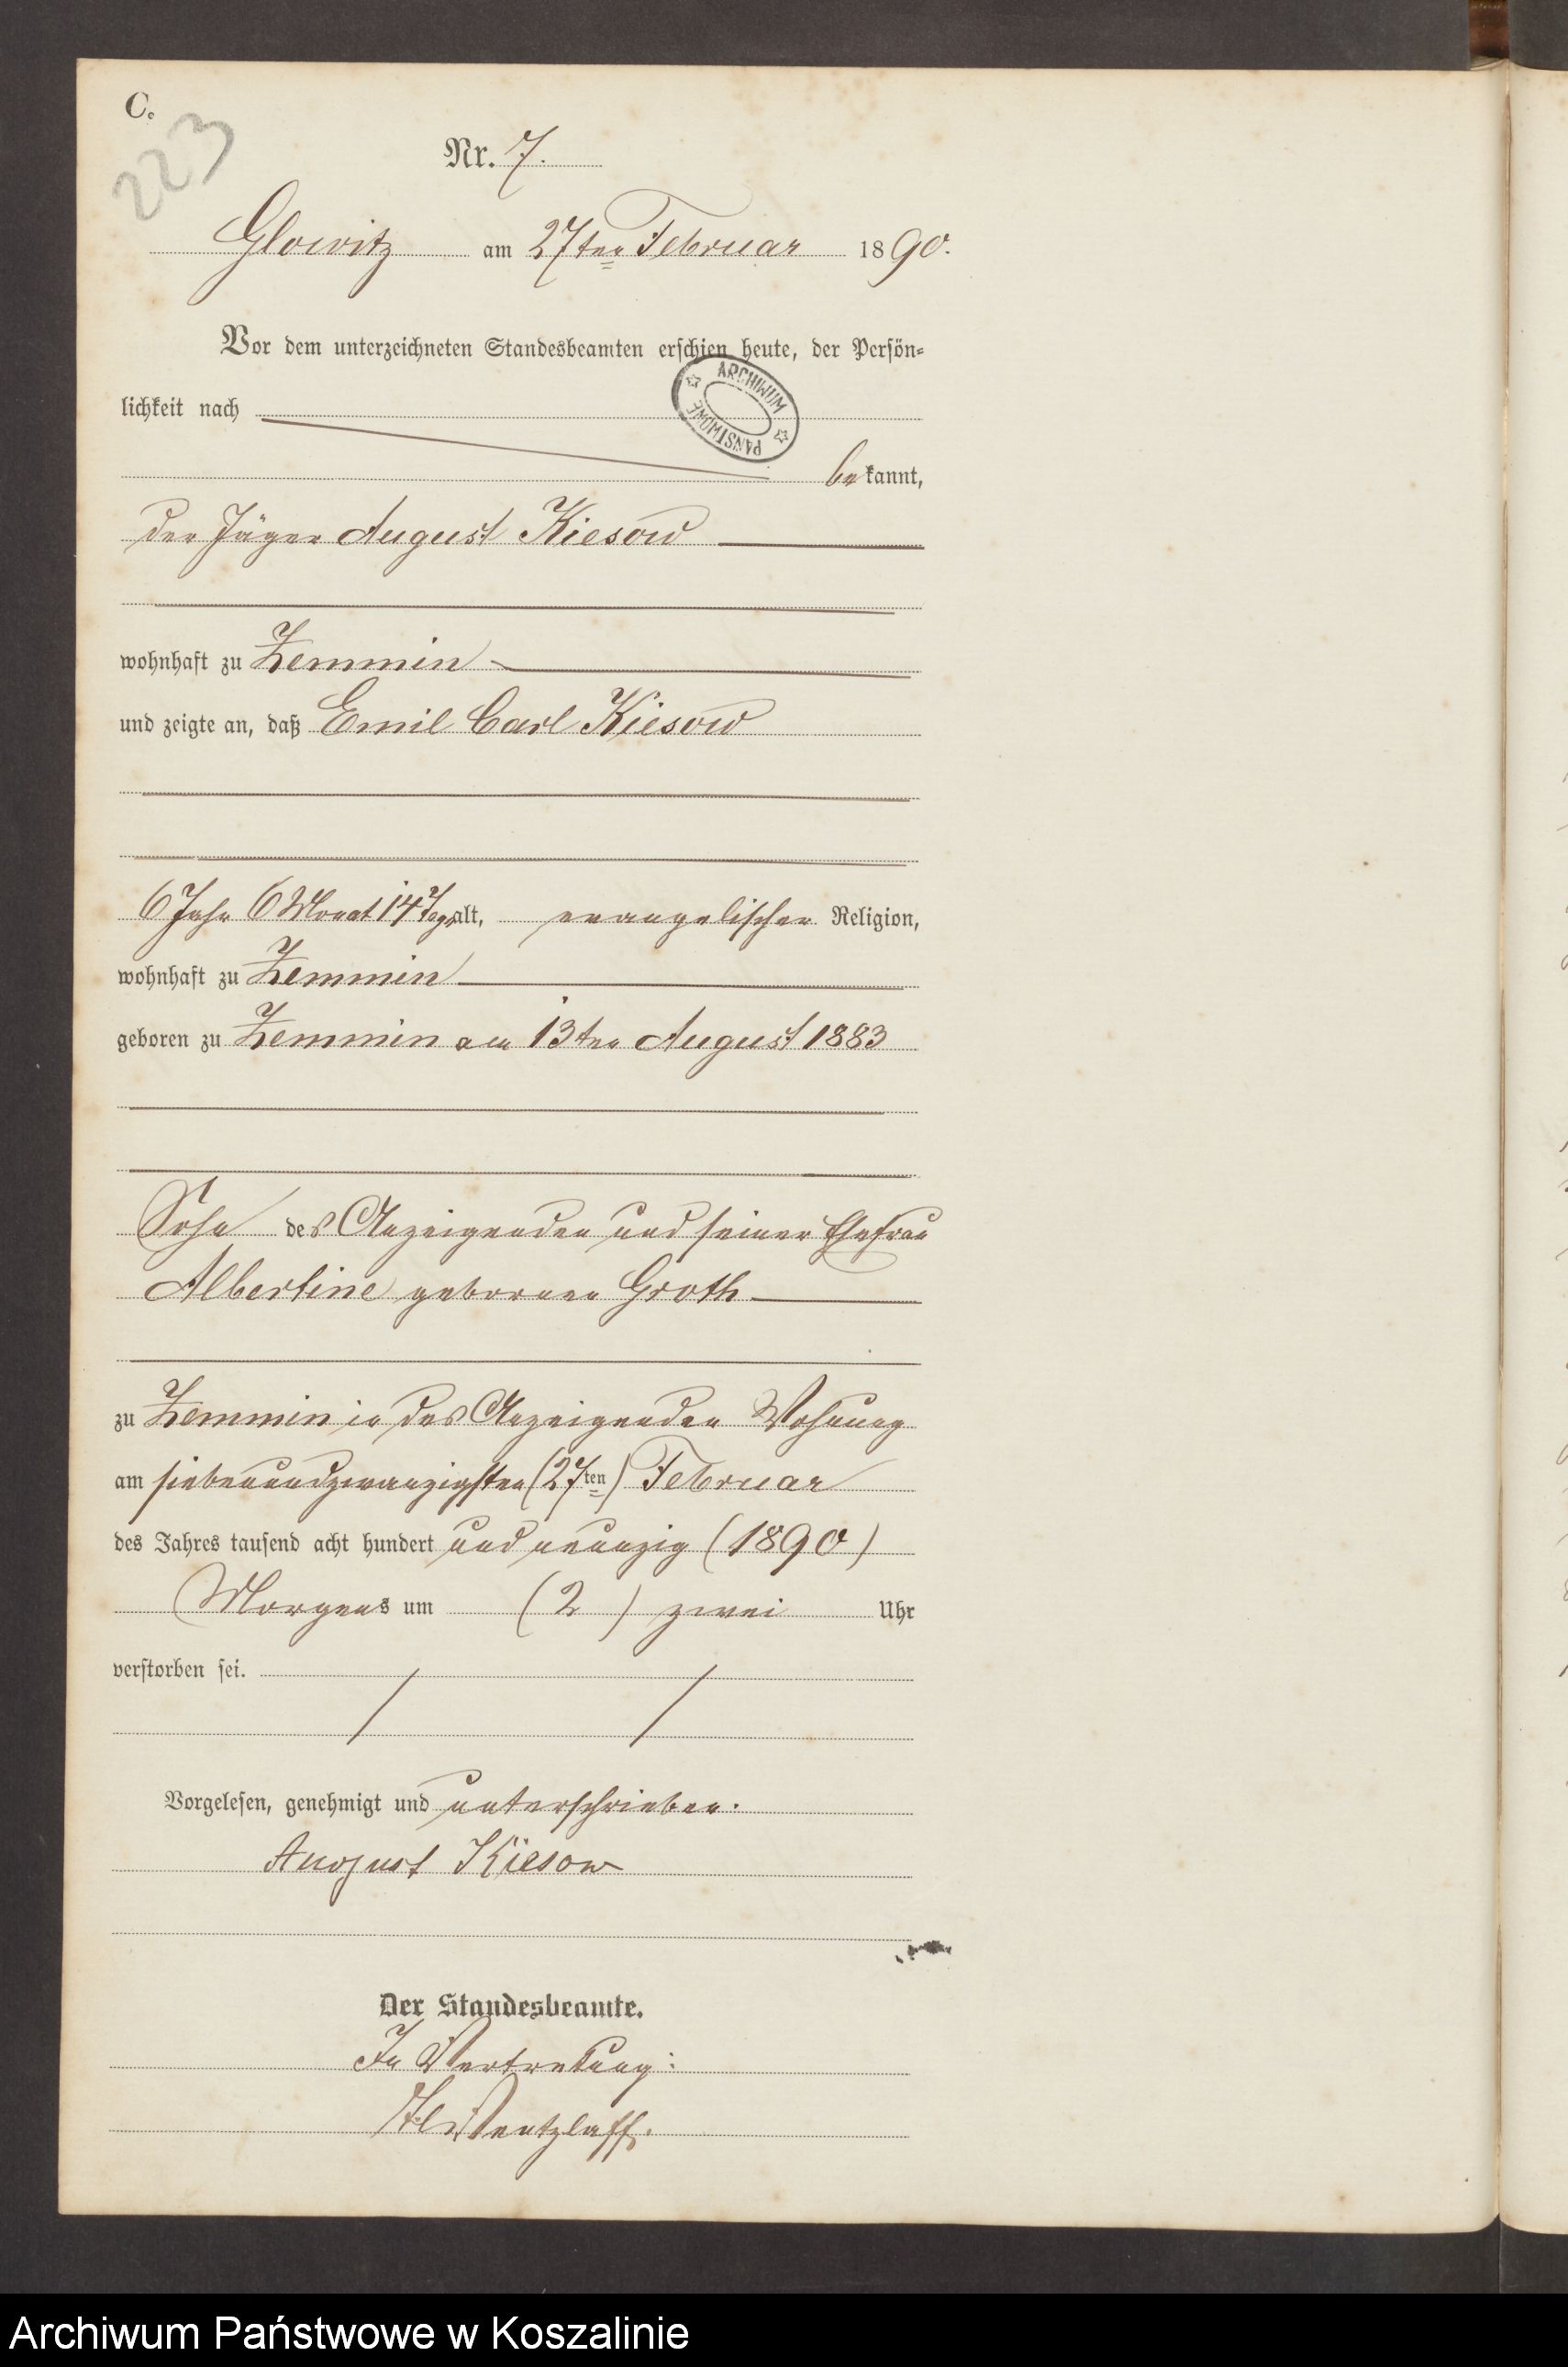 C.
223
Nr. 7.
Glowitz am 27ten Februar 1890.
Vor dem unterzeichneten Standesbeamten erschien heute, der Persön-
lichkeit nach
ARCHIWUM PAŃSTWOWE
bekannt,
der Jäger August Kiesow
wohnhaft zu Zemmin
und zeigte an, daß Emil Carl Kiesow
6 Jahr 6 Monat 14 Tage alt, evangelischer Religion,
wohnhaft zu Zemmin
geboren zu Zemmin am 13ten August 1883
Sohn des Anzeigenden und seiner Ehefrau
Albertine geborenen Groth
zu Zemmin in des Anzeigenden Wohnung
am siebenundzwanzigsten (27ten) Februar
des Jahres tausend acht hundert und neunzig (1890)
Morgens um (2) zwei Uhr
verstorben sei.
Vorgelesen, genehmigt und unterschrieben.
August Kiesow
Der Standesbeamte.
In Vertretung:
Wentzlaff.
Archiwum Państwowe w Koszalinie